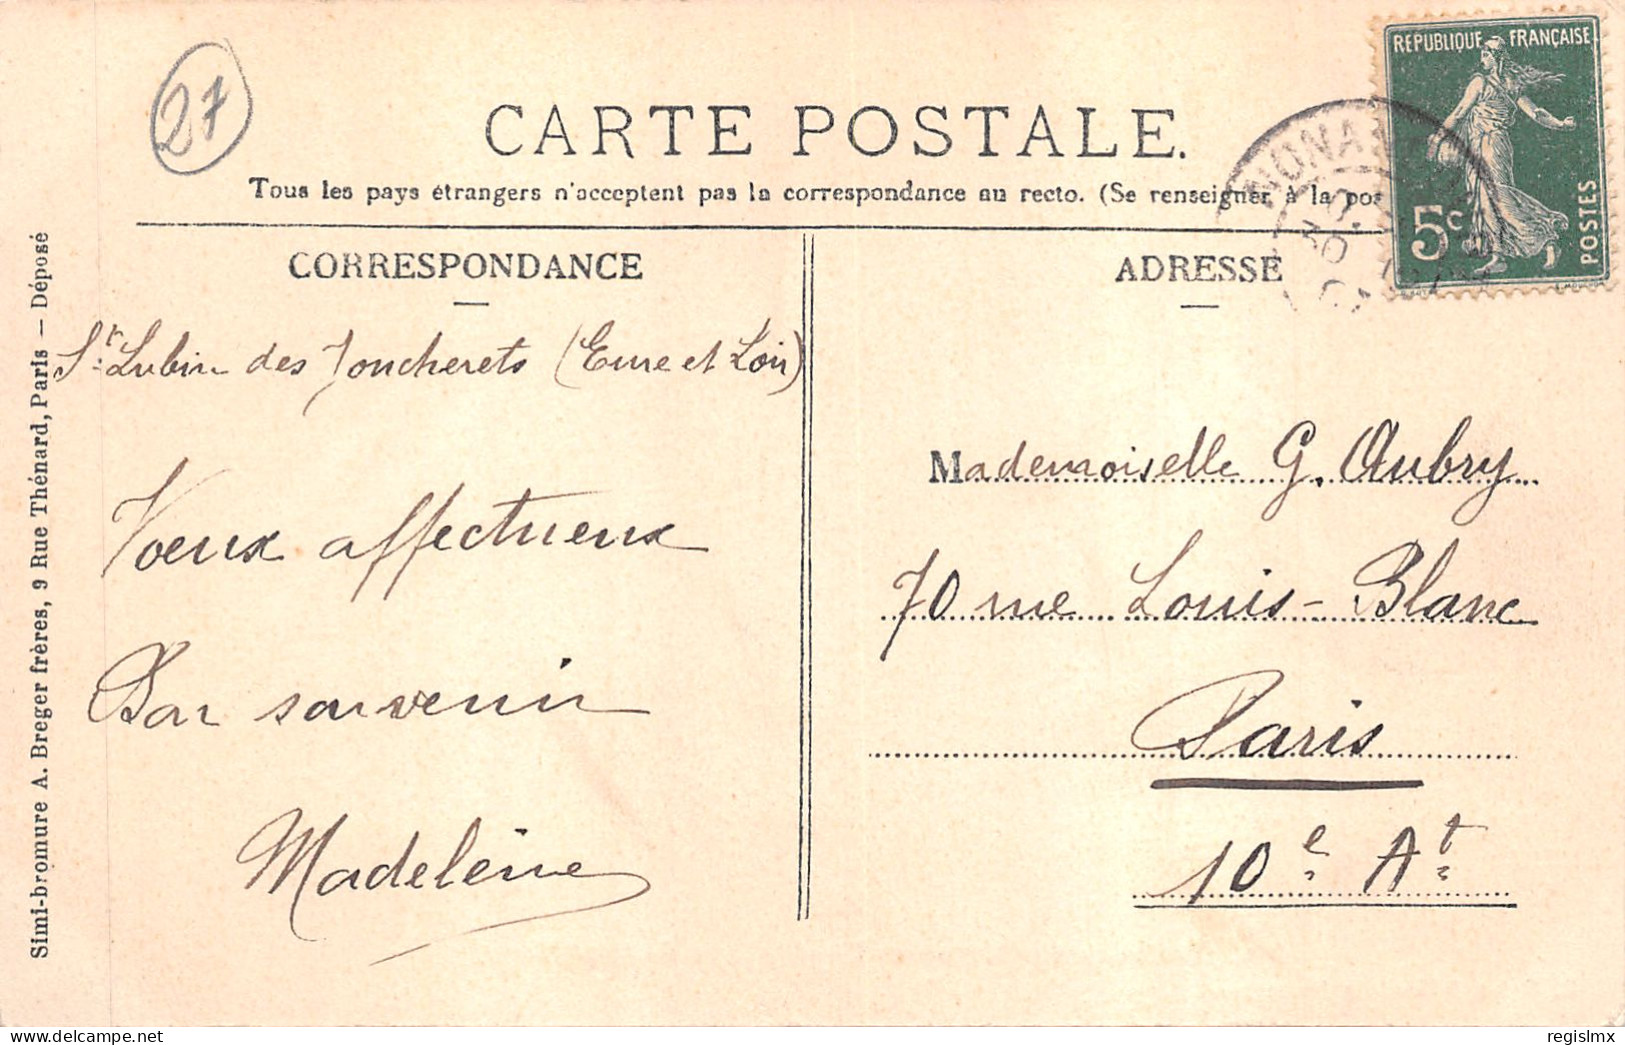 27
CARTE POSTALE.
Tous les pays étrangers n'acceptent pas la correspondance au recto. (Se renseigner à la pos
REPUBLIQUE FRANÇAISE
5c
POSTES
NONA
CORRESPONDANCE
St Lubin des Joncherets (Eure et Loir)
Voeux affectueux
Bon souvenir
Madeleine
ADRESSE
Mademoiselle G. Aubry
70 rue Louis-Blanc
Paris
10e At
Simi-bromure A. Breger frères, 9 Rue Thénard, Paris — Déposé
delcampe.net
regislmx